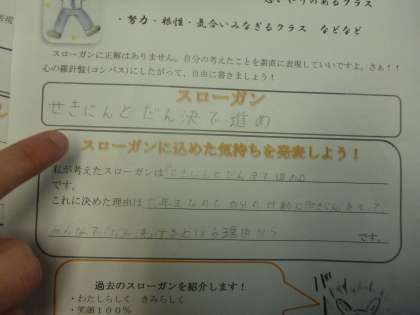 思いやりのあるクラス
・努力・根性・気合いみなぎるクラス　などなど
スローガンに正解はありません。自分の考えたことを素直に表現していいですよ。さぁ！！
心の羅針盤(コンパス)にしたがって、自由に書きましょう！
スローガン
せきにんとだん決で進め
スローガンに込めた気持ちを発表しよう！
私が考えたスローガンは「せきにんとだん決で進め」
です。
これに決めた理由は 六年生なので自分の行動に
みんなで です。
過去のスローガンを紹介します！
・わたしらしく　きみらしく
・笑顔１００％